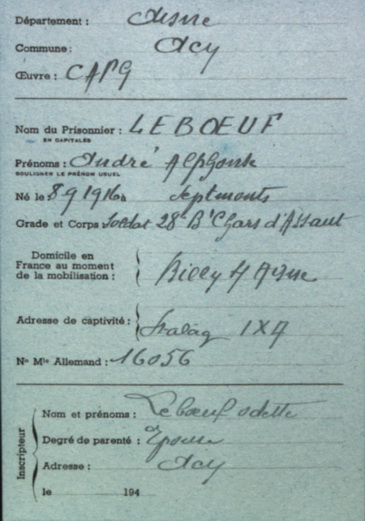 Département : Aisne
Commune : Acy
Œuvre : CAPG
Nom du Prisonnier : LEBŒUF
EN CAPITALES
Prénoms : André Alphonse
SOULIGNER LE PRÉNOM USUEL
Né le 8 9 1916 à Septmonts
Grade et Corps Soldat 28 B Chars d'Assaut
Domicile en
France au moment
de la mobilisation : Billy s/ Aisne
Adresse de captivité : Stalag IXA
N° Mle Allemand : 16056
Inscripteur
Nom et prénoms : Lebœuf odette
Degré de parenté : Epouse
Adresse : Acy
le 194